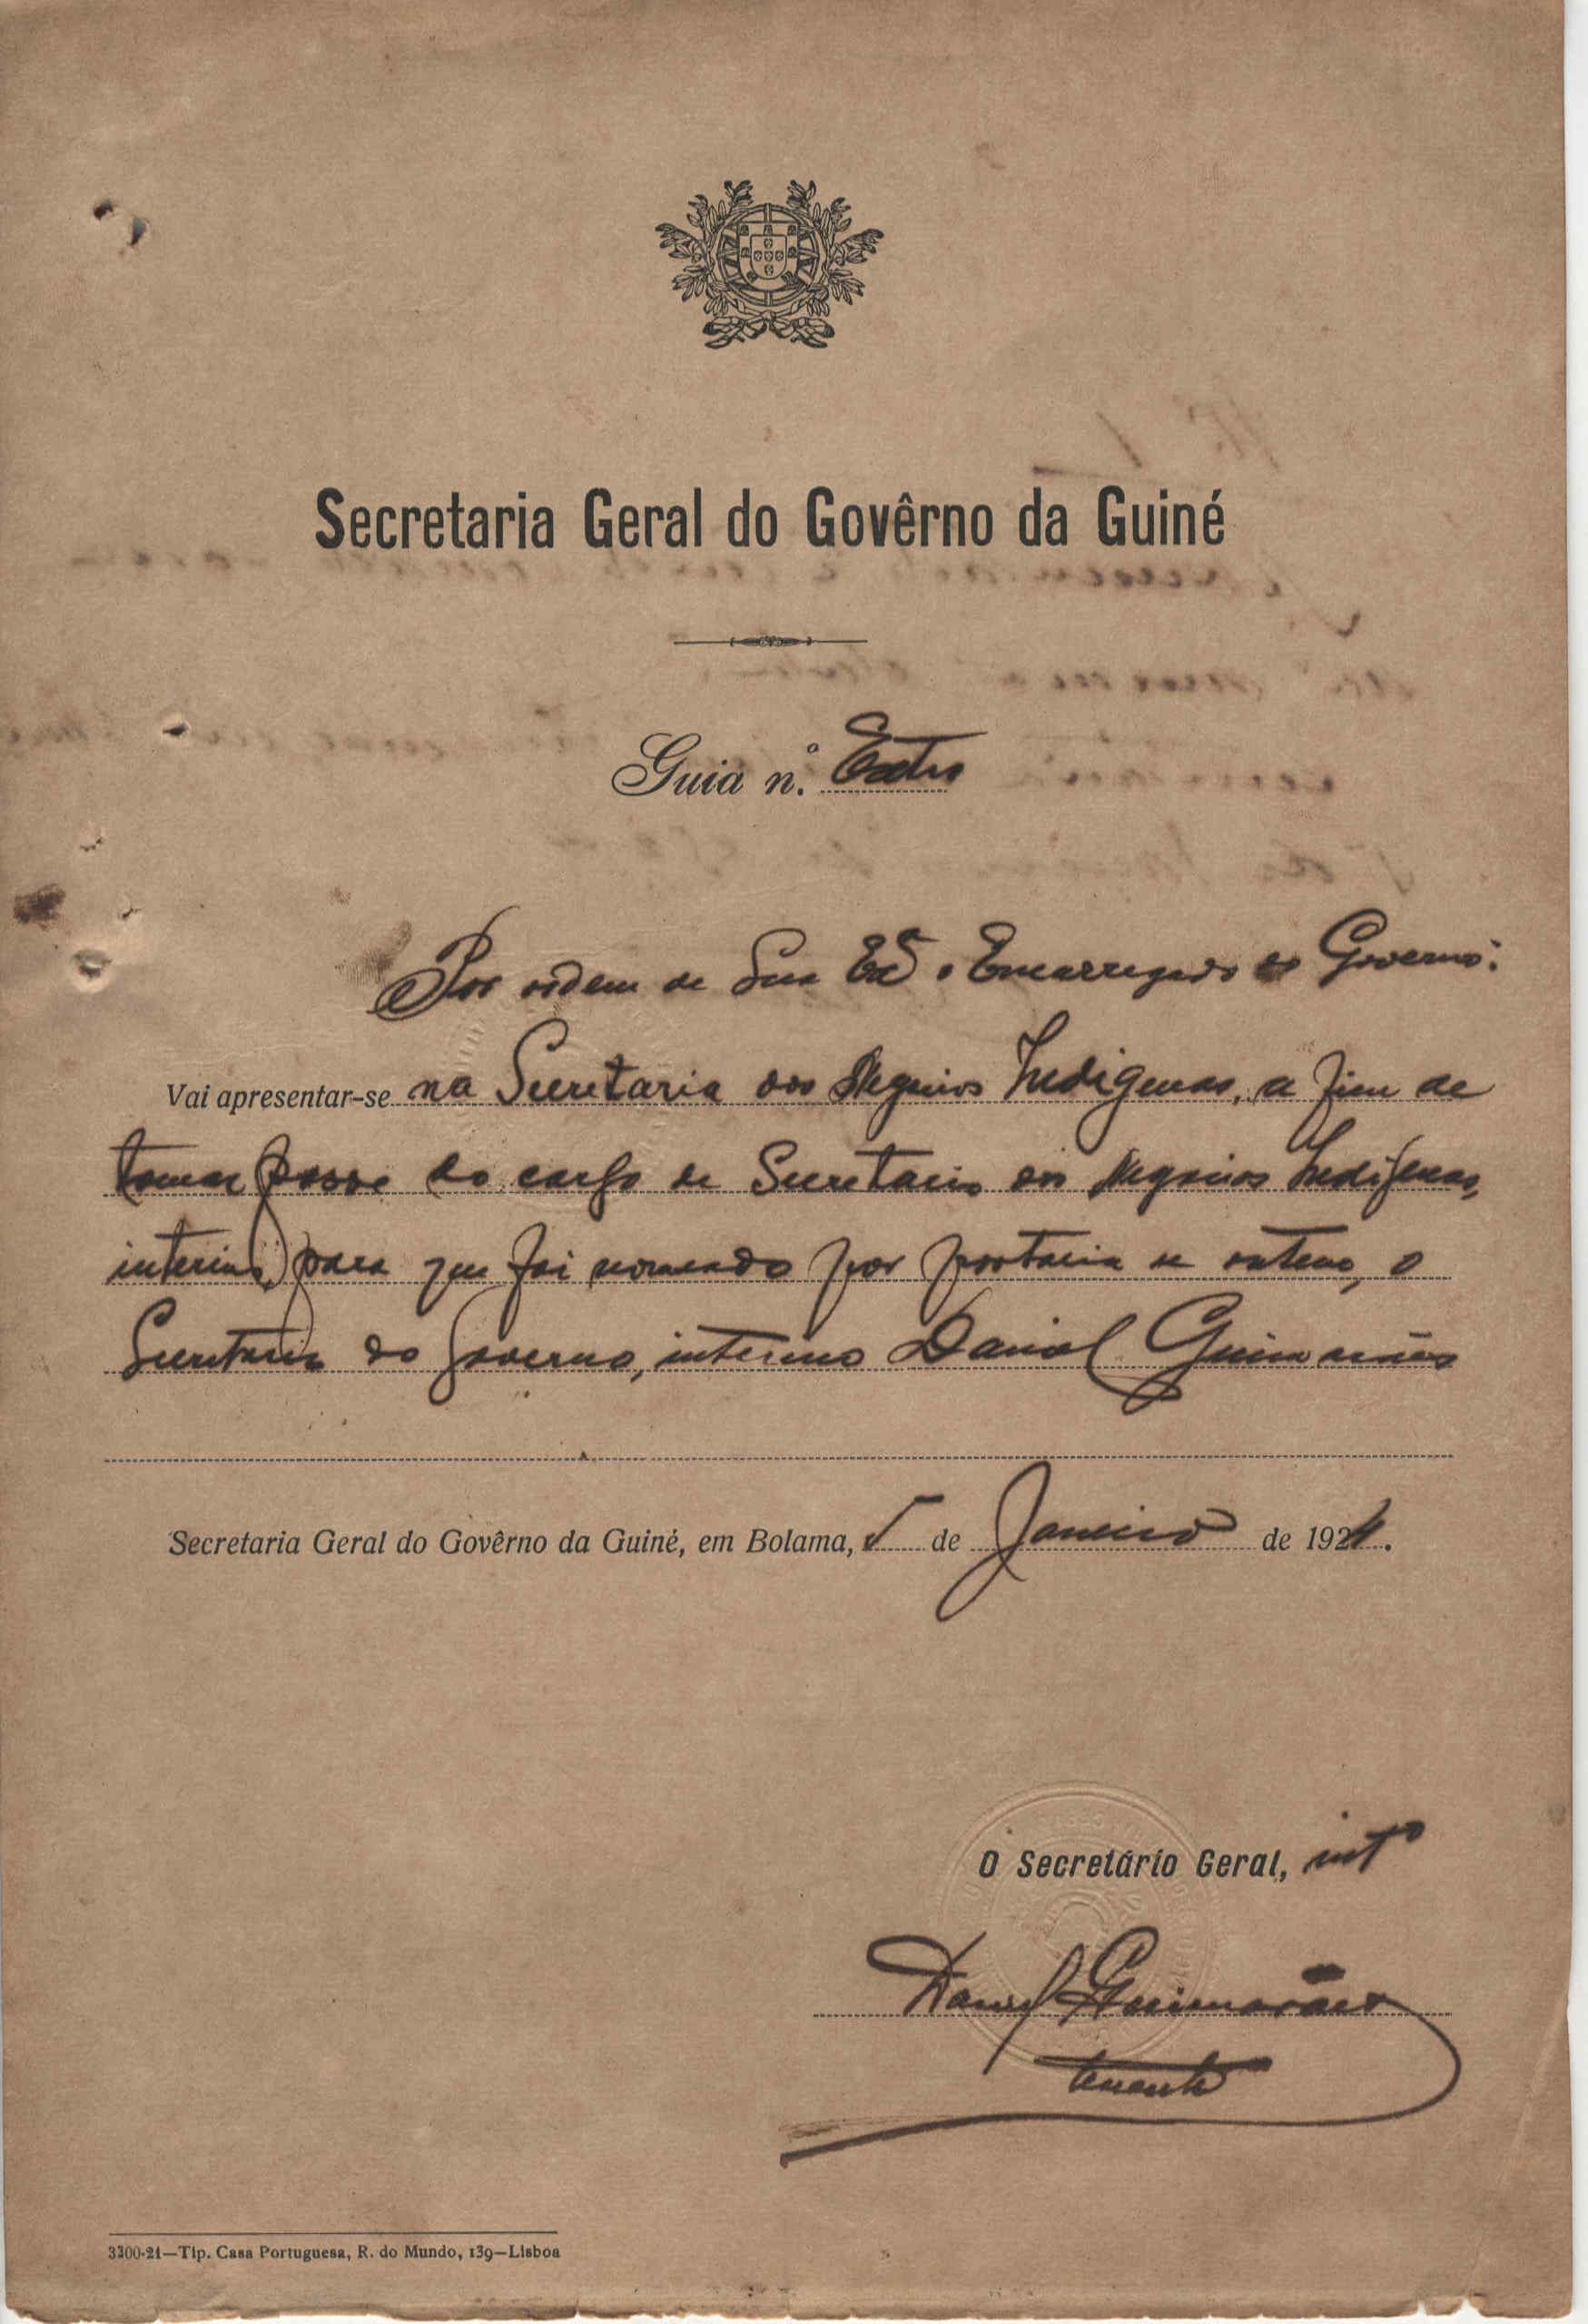 Secretaria Geral do Govêrno da Guiné
Guia n.º Extra
Por ordem de Sua Exª o Encarregado do Governo:
Vai apresentar-se na Secretaria dos Negocios Indigenas, a fim de
tomar posse do cargo de Secretario dos Negocios Indigenas,
interino, para que foi nomeado por portaria de ontem, o
Secretario do Governo, interino Daniel Guimarães
Secretaria Geral do Govêrno da Guiné, em Bolama, 5 de Janeiro de 1924.
O Secretário Geral, intº
Daniel Guimarães
tenente
3300-21—Tip. Casa Portuguesa, R. do Mundo, 139—Lisboa